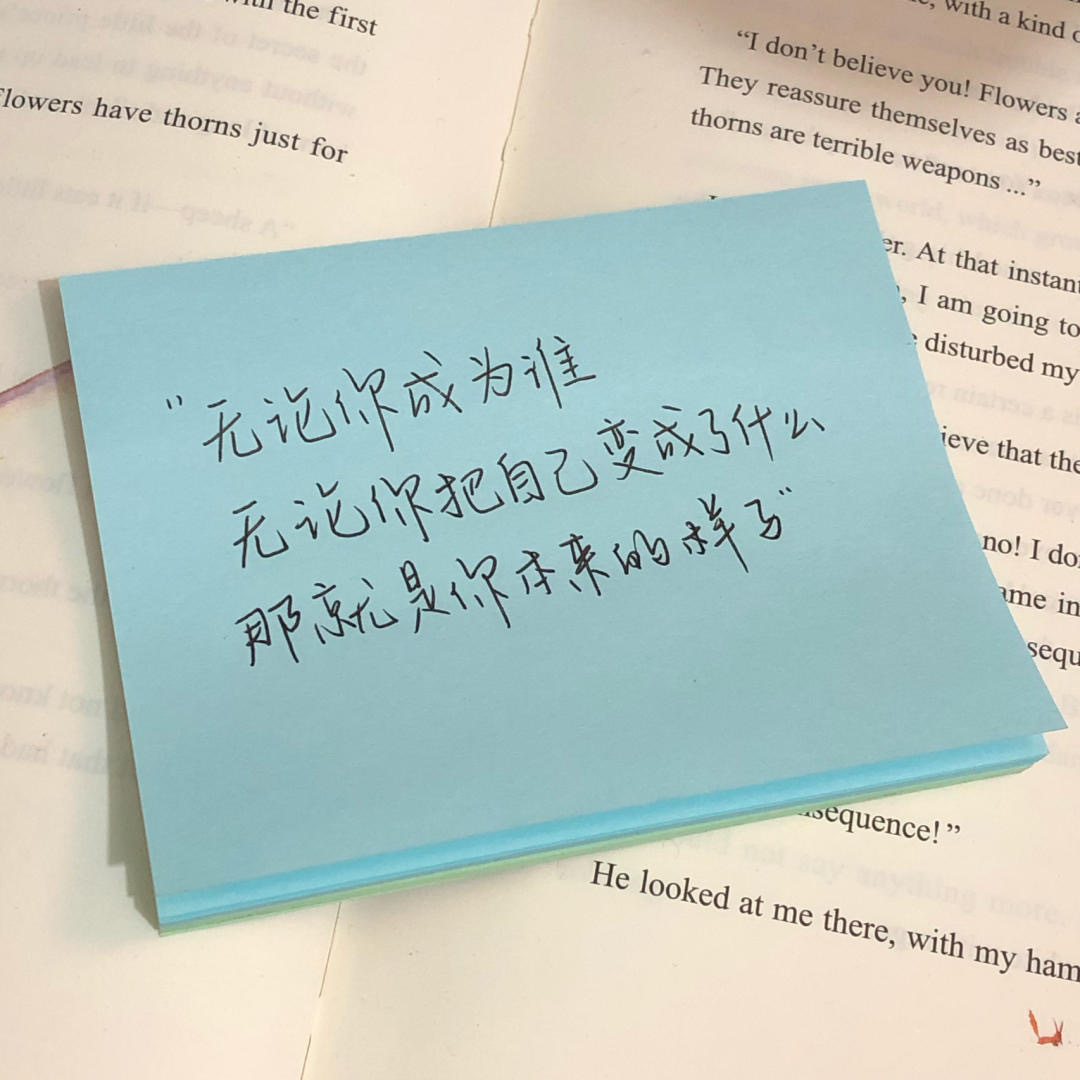 with the first
Flowers have thorns just for
, with a kind
“I don’t believe you! Flowers
They reassure themselves as best
thorns are terrible weapons ...”
er. At that instant
, I am going to
disturbed my
ieve that the
no! I do
ame in
sequ
sequence!”
He looked at me there, with my ham
“无论你成为谁
无论你把自己变成了什么
那就是你本来的样子”